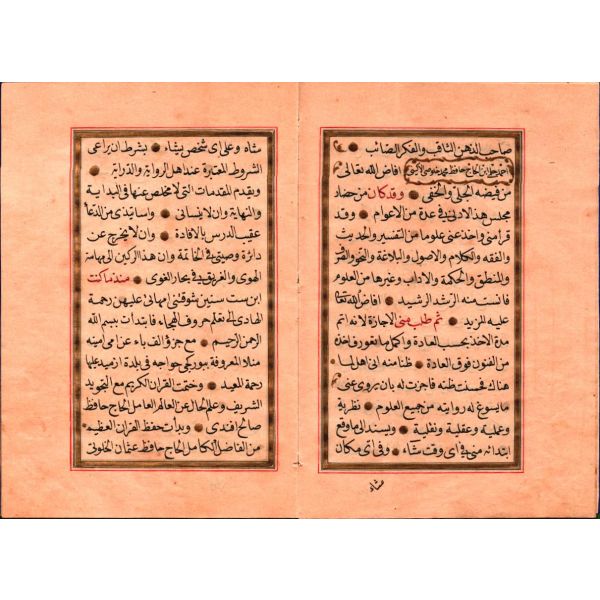 صاحب الذهن الثاقب والفكر الصائب
افاض الله تعالى
من فيضه الجلى والخفى وقد كان من حضار
مجلس هذا الادنى فى عدة من الاعوام وقد
قرا منى واخذ عنى علوما من التفسير والحديث
والفقه والكلام والاصول والبلاغة والنحو والصرف
والمنطق والحكمة والاداب وغيرها من العلوم
فانست منه الرشد الرشيد افاض الله تعالى
عليه المزيد ثم طلب منى الاجازة لانه اتم
مدة الاخذ بحسب العادة واكمل ما تقور فاخذ
من الفنون فوق العادة ظنا منه انى اهل لما
هناك فحسنت ظنه فاجزت له بان يروى عنى
ما يسوغ له روايته من جميع العلوم نظرية
وعملية وعقلية ونقلية ويسند الى ما وقع
ابتدائه منى فى اى وقت شاء وفى اى مكان
شاء
شاء وعلى اى شخص يشاء بشرط ان يراعى
الشروط المعتبرة عند اهل الرواية والدراية
ويقدم المقدمات التى لا مخص عنها فى البداية
والنهاية وان لا ينسانى واساتيذى من الدعا
عقيب الدرس بالافادة وان لا يخرج عن
دائرة وصيتى فى الخاتمة وان هذا الركين الى مهامة
الهوى والغريق فى بحار الغوى منذ ما كنت
ابن ست سنين شوقتنى امهانى عليهن رحمة
الهادى الى تعلم حروف الهجاء فابتدأت ببسم الله
الرحمن الرحيم مع جزؤ الفباء عن امى امينه
منلا المعروفة ببوركى خواجه فى بلدة ازميد عليها
رحمة المعيد وختمت القران الكريم مع التجويد
الشريف وعلم الحال عن العالم العامل الحاج حافظ
صالح افندى وبدأت حفظ القران العظيم
من الفاضل الكامل الحاج حافظ عثمان الخلوتى